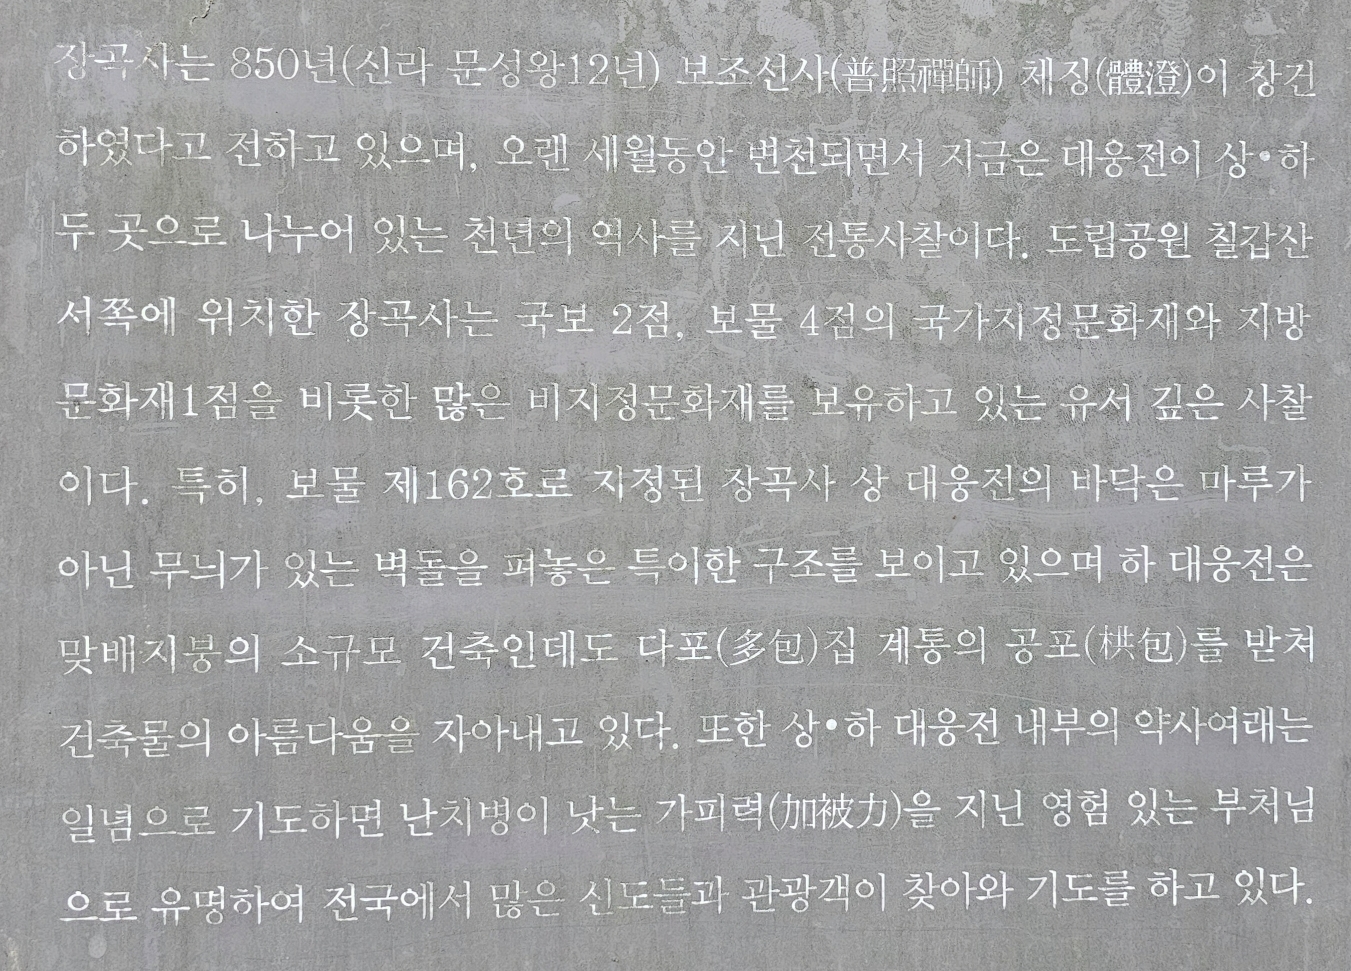 장곡사는 850년(신라 문성왕12년) 보조선사(普照禪師) 체징(體澄)이 창건
하였다고 전하고 있으며, 오랜 세월동안 변천되면서 지금은 대웅전이 상•하
두 곳으로 나누어 있는 천년의 역사를 지닌 전통사찰이다. 도립공원 칠갑산
서쪽에 위치한 장곡사는 국보 2점, 보물 4점의 국가지정문화재와 지방
문화재1점을 비롯한 많은 비지정문화재를 보유하고 있는 유서 깊은 사찰
이다. 특히, 보물 제162호로 지정된 장곡사 상 대웅전의 바닥은 마루가
아닌 무늬가 있는 벽돌을 펴놓은 특이한 구조를 보이고 있으며 하 대웅전은
맞배지붕의 소규모 건축인데도 다포(多包)집 계통의 공포(栱包)를 받쳐
건축물의 아름다움을 자아내고 있다. 또한 상•하 대웅전 내부의 약사여래는
일념으로 기도하면 난치병이 낫는 가피력(加被力)을 지닌 영험 있는 부처님
으로 유명하여 전국에서 많은 신도들과 관광객이 찾아와 기도를 하고 있다.